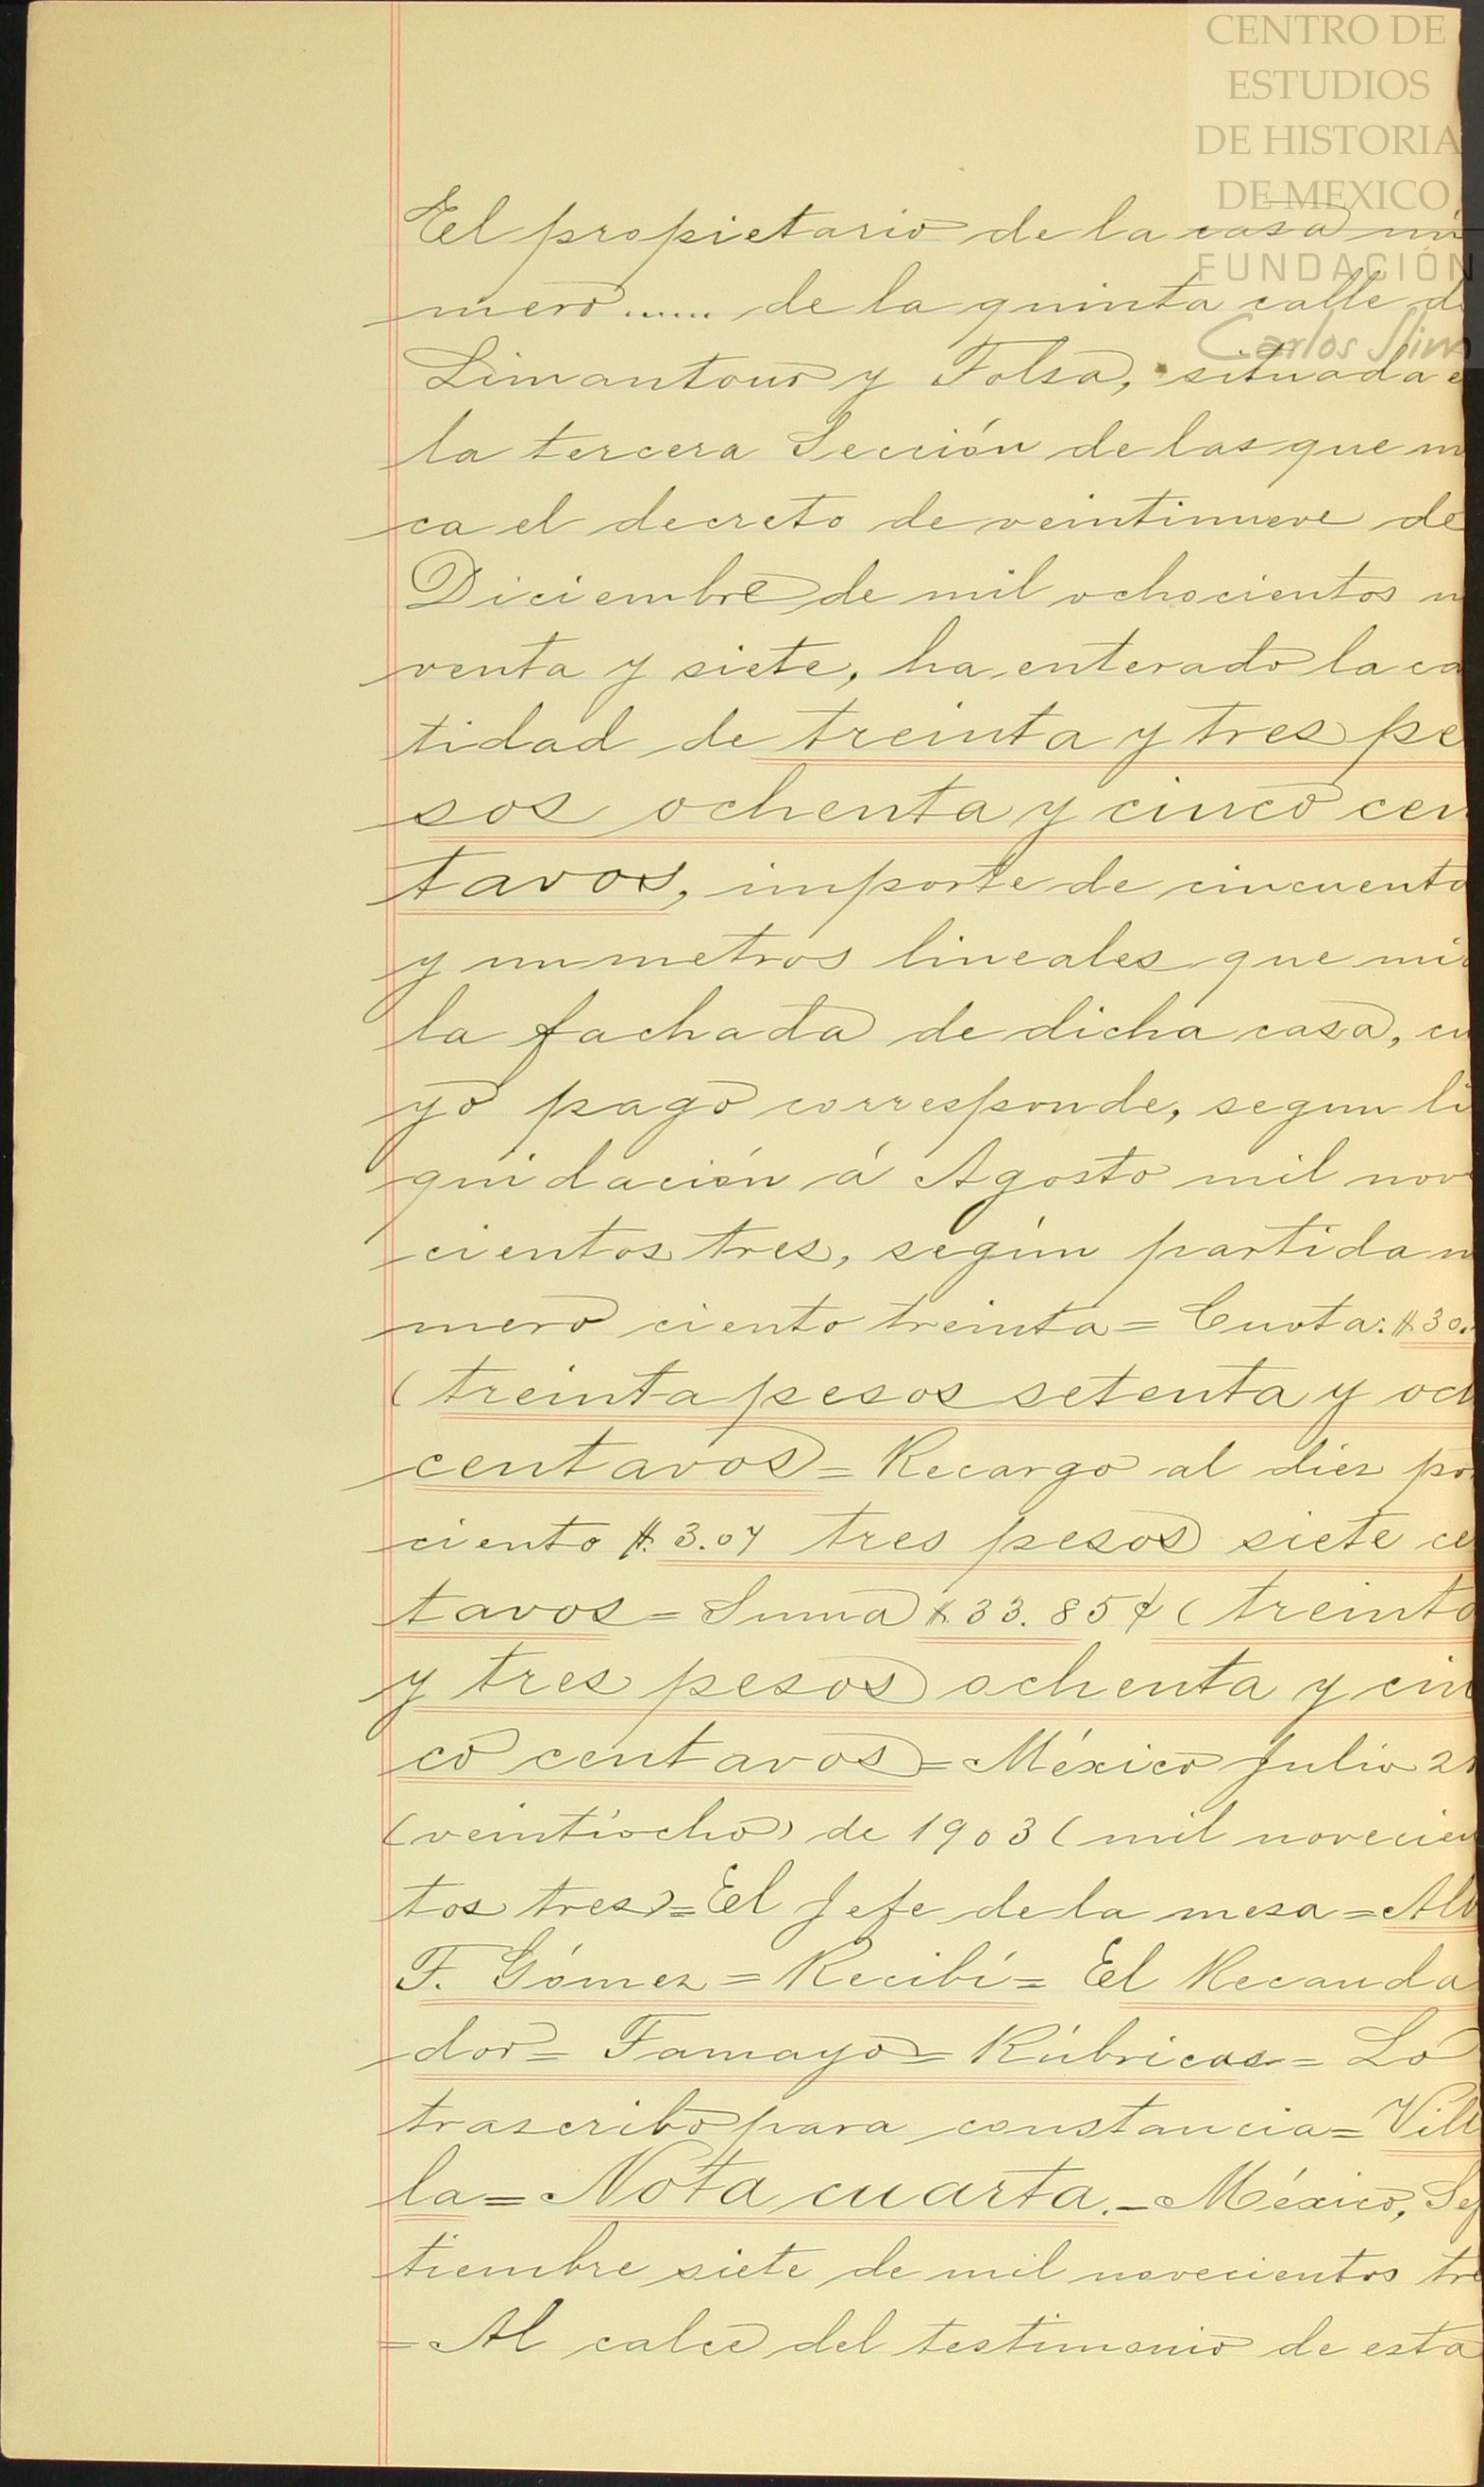 CENTRO DE
ESTUDIOS
DE HISTORIA
DE MEXICO
FUNDACIÓN
Carlos Slim
El propietario de la casa nú
mero ...... de la quinta calle d
Limantour y Tolsa, situada e
la tercera Sección de las que m
ca el decreto de veintinueve de
Diciembre de mil ochocientos n
venta y siete, ha enterado la ca
tidad de treinta y tres pe
sos ochenta y cinco cen
tavos, importe de cincuenta
y un metros lineales que mi
la fachada de dicha casa, cu
yo pago corresponde, segun li
quidación á Agosto mil nove
cientos tres, según partida n
mero ciento treinta = Cuota: $30.
(treinta pesos setenta y och
centavos) = Recargo al diez por
ciento $. 3.07 tres pesos siete ce
tavos = Suma $.33.85¢ (treinta
y tres pesos ochenta y cin
co centavos) = México Julio 2
(veintiocho) de 1903 (mil novecien
tos tres) = El Jefe de la mesa = Alb
F. Gómez = Recibí = El Recauda
dor = Tamayo = Rúbricas = Lo
trascribo para constancia = Vill
la = Nota cuarta. = México, Sep
tiembre siete de mil novecientos tre
= Al calce del testimonio de esta